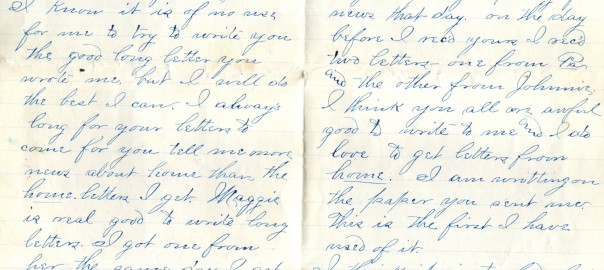 I know it is of no use
for me to try to write you
the good long letter you
wrote me, but I will do
the best I can. I always
long for your letters to
come for you tell me more
news about home than the
home letters I get. Maggie
is real good to write long
letters. I got one from
her the same day I got
news that day. on the day
before I rec'd yours I rec'd
two letters one from Pa
and the other from Johnnie,
I think you all are awful
good to write to me and I do
love to get letters from
home. I am writting on
the paper you sent me.
This is the first I have
used of it.